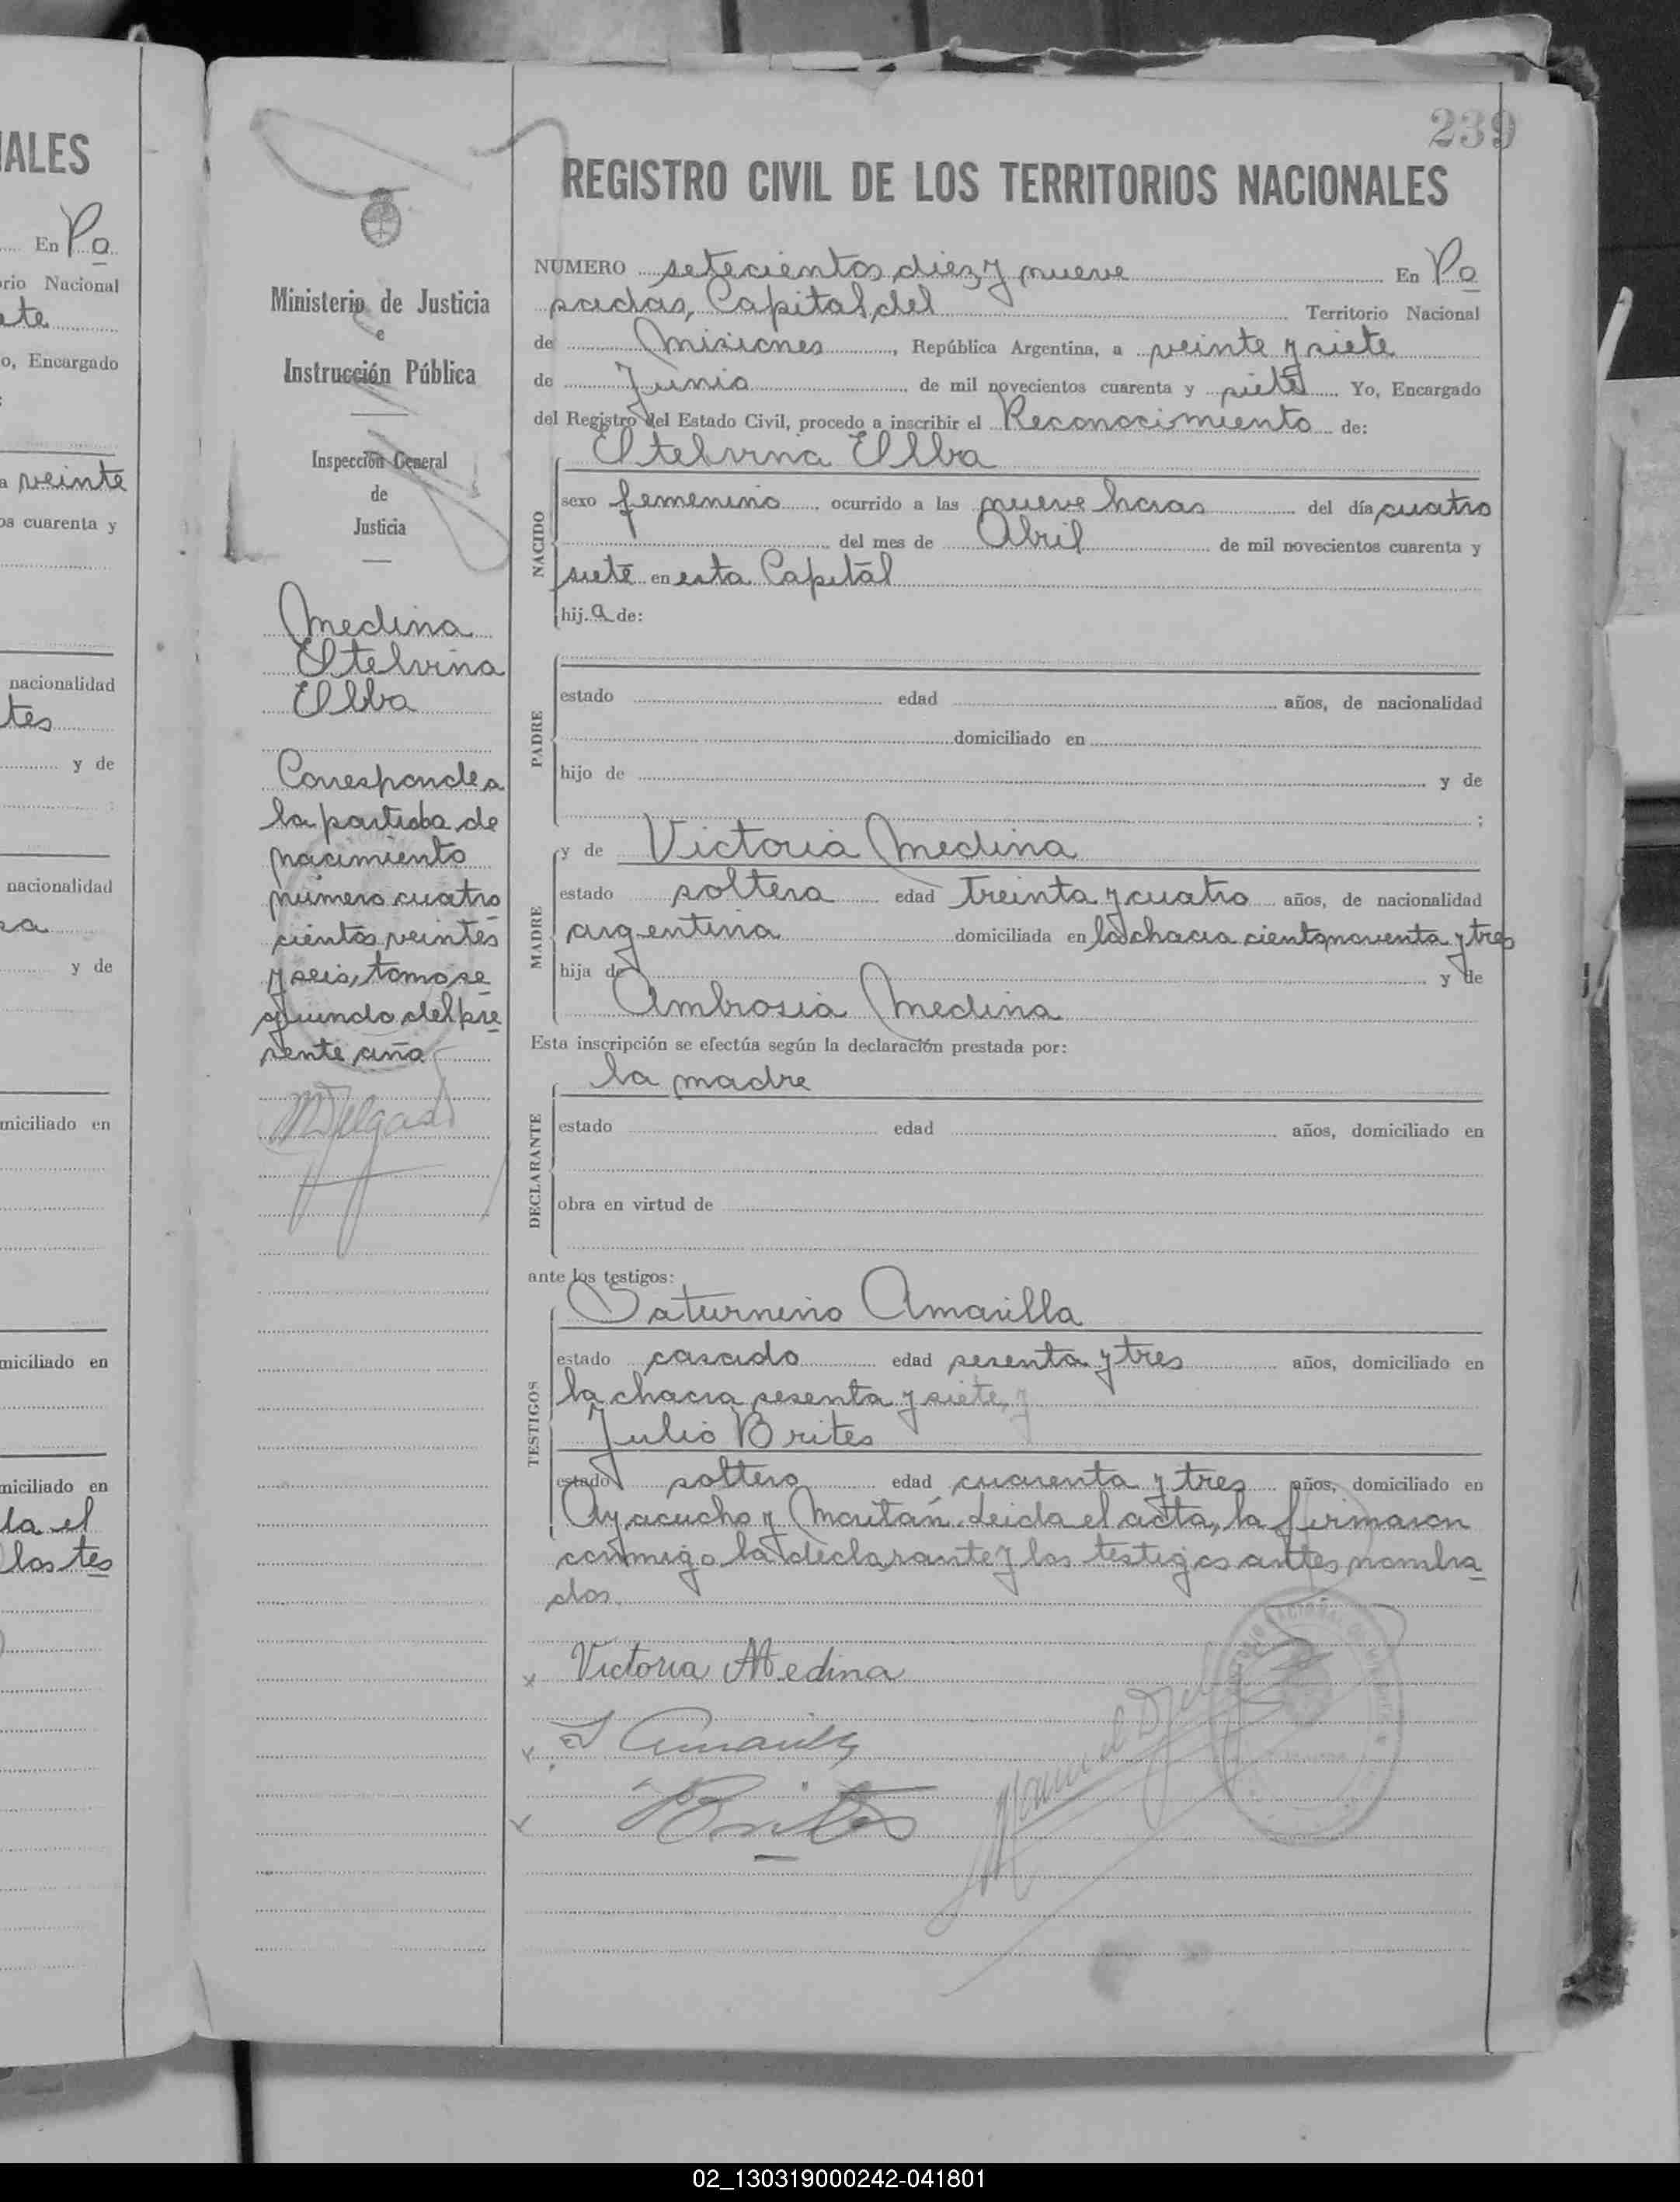 239
REGISTRO CIVIL DE LOS TERRITORIOS NACIONALES
NUMERO setecientos diez y nueve En Po
sadas, Capital del Territorio Nacional
de Misiones, República Argentina, a veinte y siete
de Junio de mil novecientos cuarenta y siete Yo, Encargado
del Registro del Estado Civil, procedo a inscribir el Reconocimiento de:
Etelvina Elba
NACIDO
sexo femenino, ocurrido a las nueve horas del día cuatro
del mes de Abril de mil novecientos cuarenta y
siete en esta Capital
hij a de:
PADRE
estado edad años, de nacionalidad
domiciliado en
hijo de y de
;
MADRE
y de Victoria Medina
estado soltera edad treinta y cuatro años, de nacionalidad
argentina domiciliada en la chacra ciento noventa y tres
hija de y de
Ambrosia Medina
Esta inscripción se efectúa según la declaración prestada por:
DECLARANTE
la madre
estado edad años, domiciliado en
obra en virtud de
ante los testigos:
TESTIGOS
Saturnino Amarilla
estado casado edad sesenta y tres años, domiciliado en
la chacra sesenta y siete, y
Julio Brites
estado soltero edad cuarenta y tres años, domiciliado en
Ayacucho y Moritán. Leida el acta, la firmaron
conmigo la declarante y los testigos antes nombra
dos.
Victoria Medina
S Amarilla
Brites
Manuel Delgado
Ministerio de Justicia
e
Instrucción Pública
Inspección General
de
Justicia
Medina
Etelvina
Elba
Corresponde a
la partida de
nacimiento
número cuatro
cientos veintes
y seis, tomo se
gundo del pre
sente año
MDelgado
IALES
En Po
rio Nacional
ete
o, Encargado
a veinte
os cuarenta y
nacionalidad
tes
y de
nacionalidad
sa
y de
miciliado en
miciliado en
miciliado en
la el
los tes
02_130319000242-041801